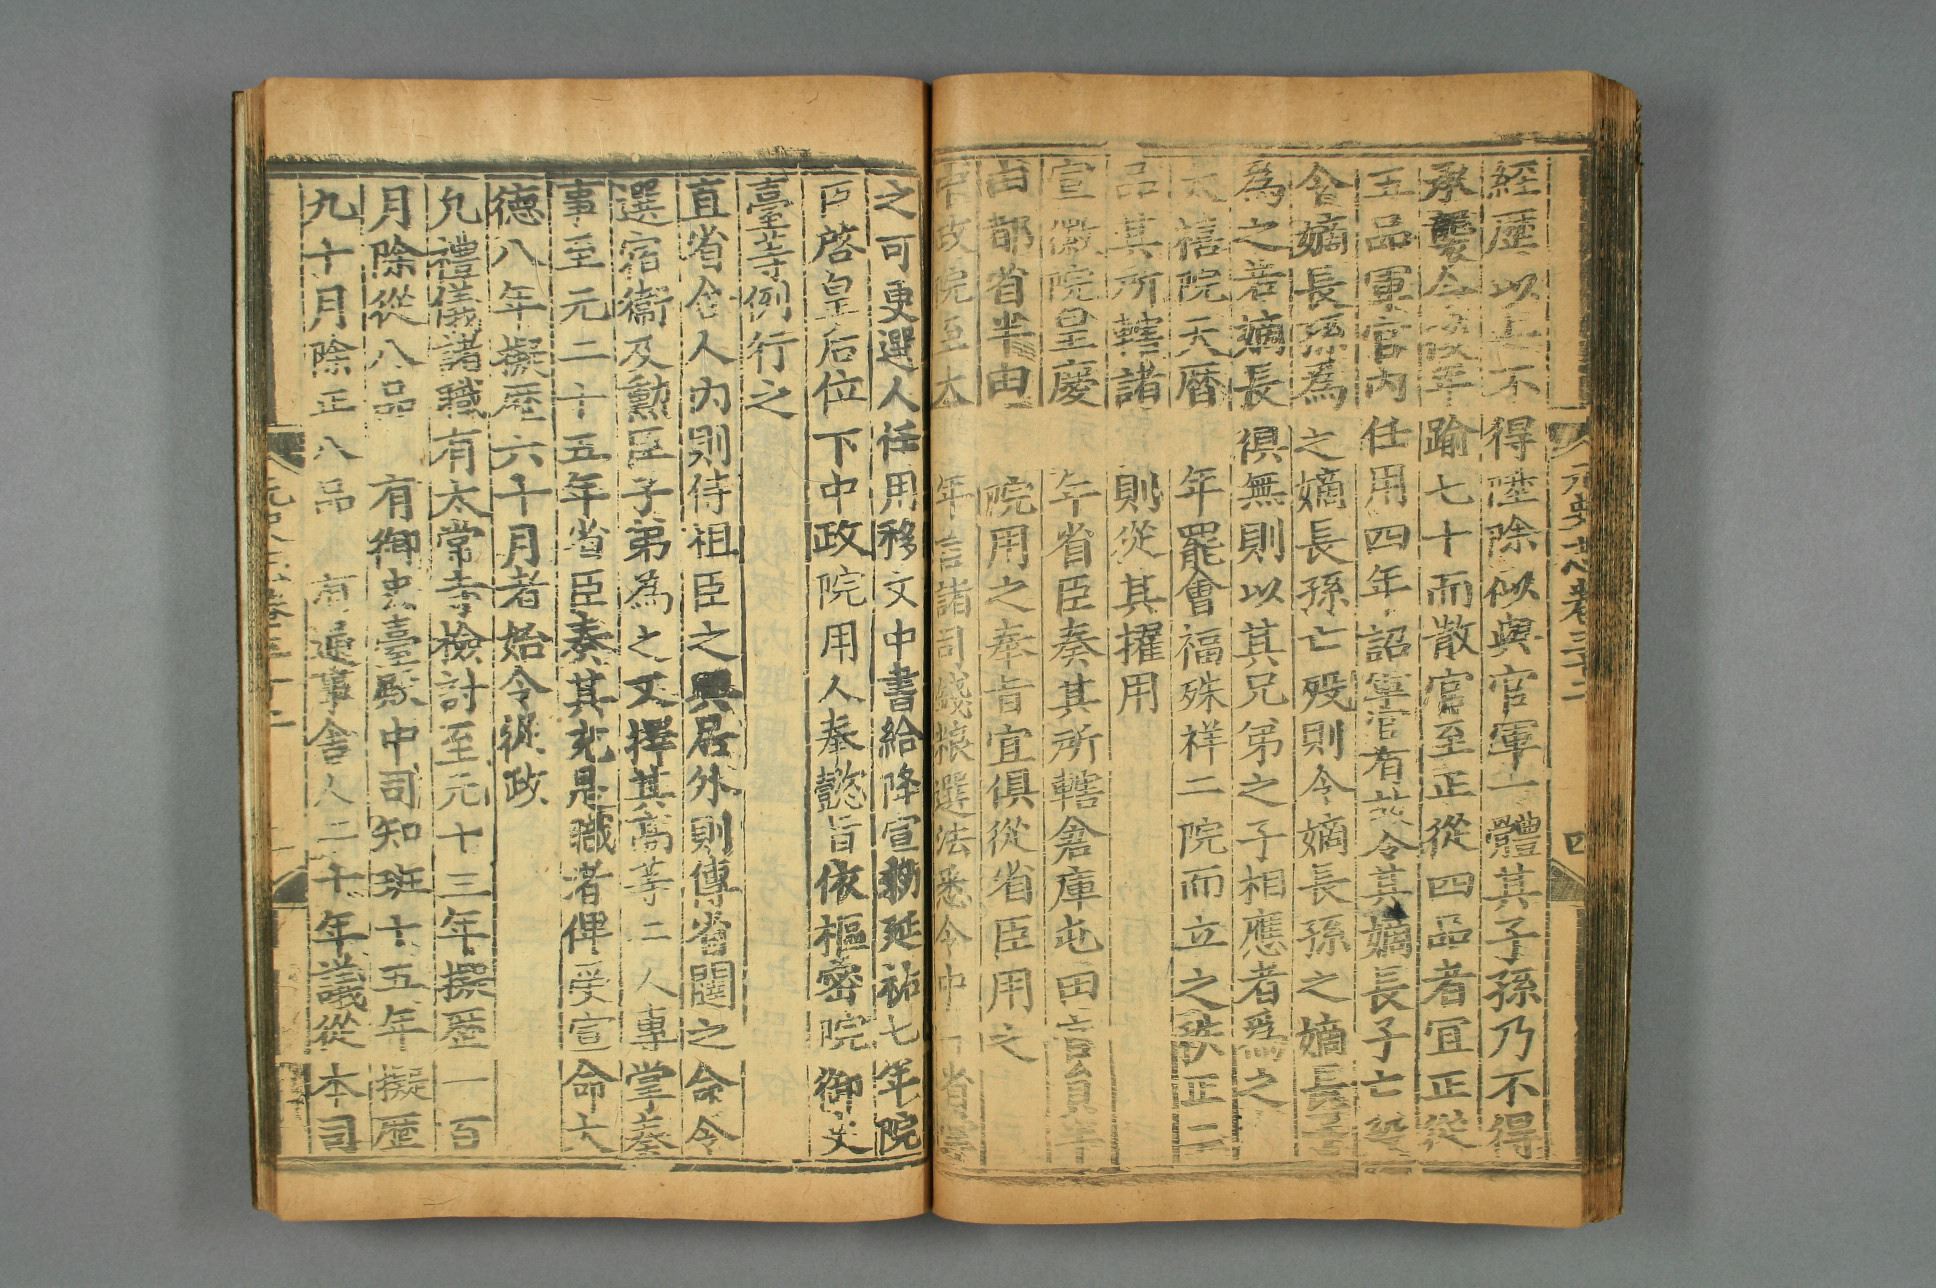 經歷以上不得陞除似與官軍一體其子孫乃不得
承襲今後年踰七十而散官至正從四品者宜正從
五品軍官內任用四年詔軍官有故令其嫡長子亡歿
令嫡長孫為之嫡長孫亡歿則令嫡長孫之嫡長子
為之若嫡長俱無則以其兄弟之子相應者為之
太禧院天曆年罷會福殊祥二院而立之秩正二
品其所轄諸則從其擢用
宣徽院皇慶年省臣奏其所轄倉庫屯田官員半
由都省半由院用之奉旨宜俱從省臣用之
中政院至大年言諸司錢糧選法悉令中書省掌
之可更選人任用移文中書給降宣勅延祐七年院
臣啓皇后位下中政院用人奉懿旨依樞密院御史
臺等例行之
直省舍人內則侍相臣之興居外則傳省闥之命令
選宿衞及勳臣子弟為之又擇其高等二人專掌奏
事至元二十五年省臣奏其充是職者俾受宣命大
德八年擬歷六十月者始令從政
凡禮儀諸職有太常寺檢討至元十三年擬歷一百
月除從八品 有御史臺殿中司知班十五年擬歷
九十月除正八品 有通事舍人二十年議從本司
元史志卷三十二
四